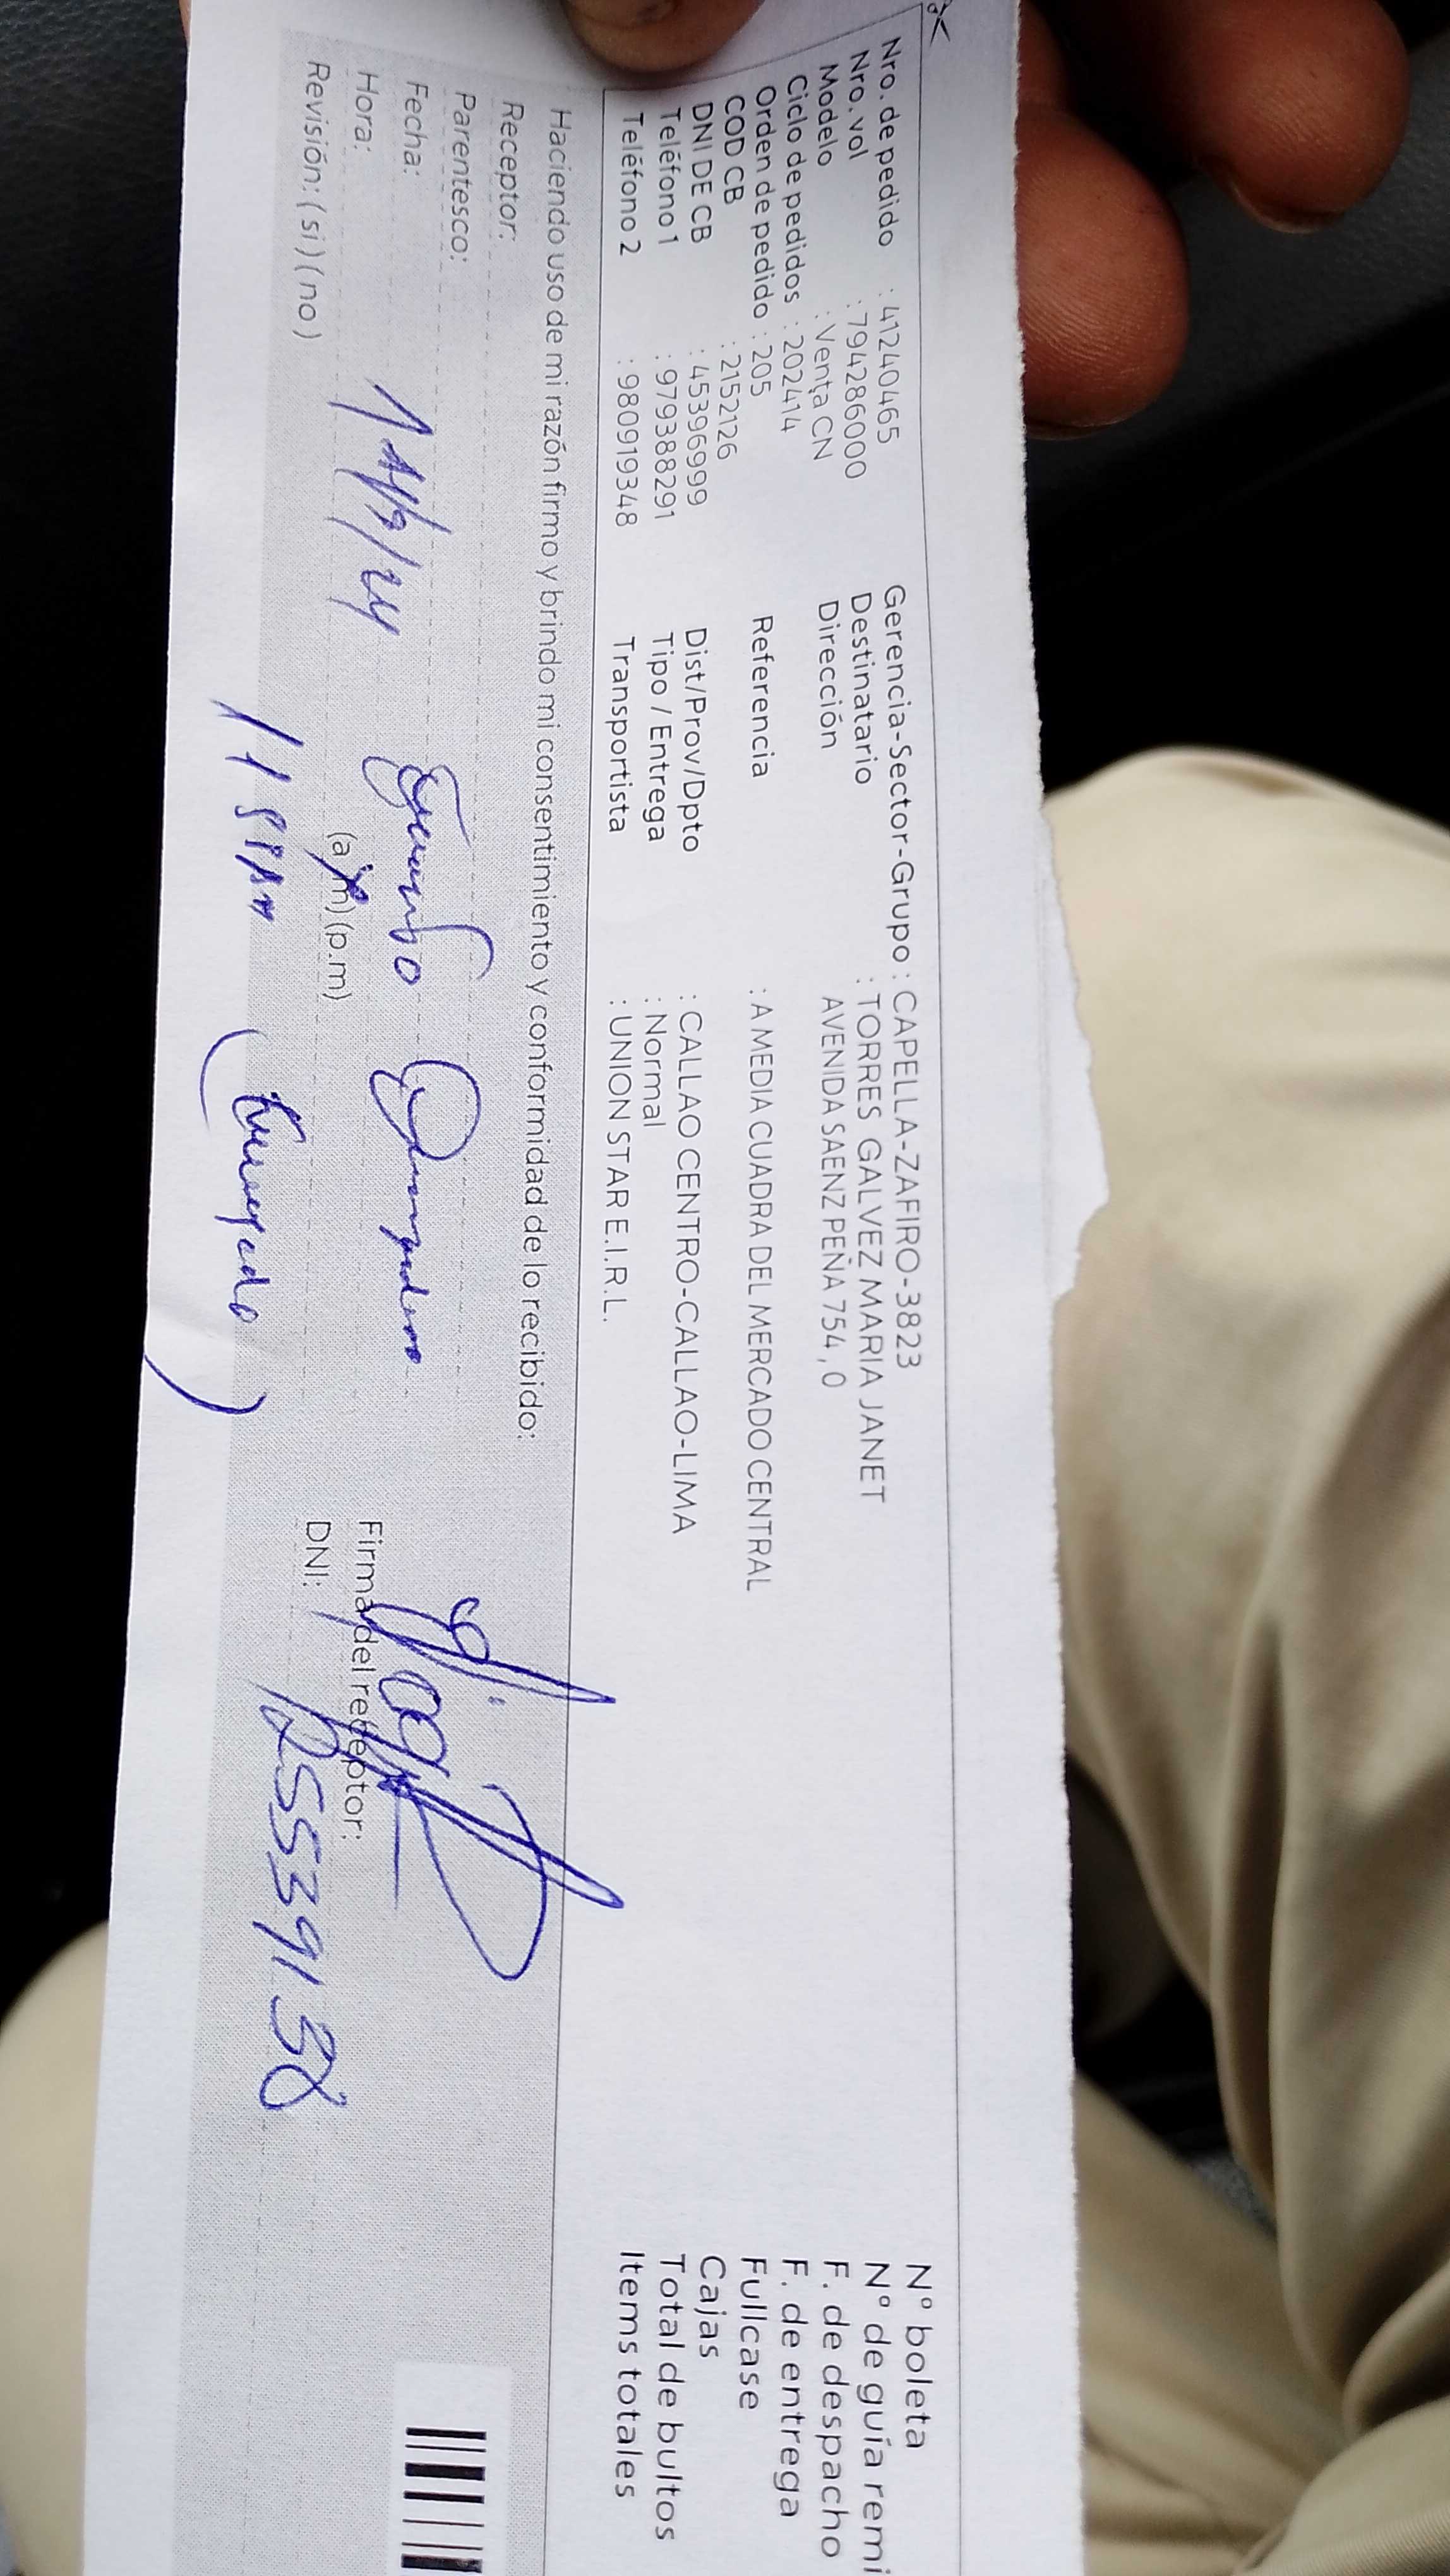 Nro. de pedido : 41240465
Nro. vol : 794286000
Modelo : Venta CN
Ciclo de pedidos : 202414
Orden de pedido : 205
COD CB : 2152126
DNI DE CB : 45396999
Teléfono 1 : 979388291
Teléfono 2 : 980919348
Gerencia-Sector-Grupo : CAPELLA-ZAFIRO-3823
Destinatario : TORRES GALVEZ MARIA JANET
Dirección AVENIDA SAENZ PEÑA 754, 0
Referencia : A MEDIA CUADRA DEL MERCADO CENTRAL
Dist/Prov/Dpto : CALLAO CENTRO-CALLAO-LIMA
Tipo / Entrega : Normal
Transportista : UNION STAR E.I.R.L.
N° boleta
N° de guía remi
F. de despacho
F. de entrega
Fullcase
Cajas
Total de bultos
Items totales
Haciendo uso de mi razón firmo y brindo mi consentimiento y conformidad de lo recibido:
Receptor:
Parentesco:
Fecha:
Hora: (a.m) (p.m)
Revisión: (si) (no)
Firma del receptor:
DNI: 25539138